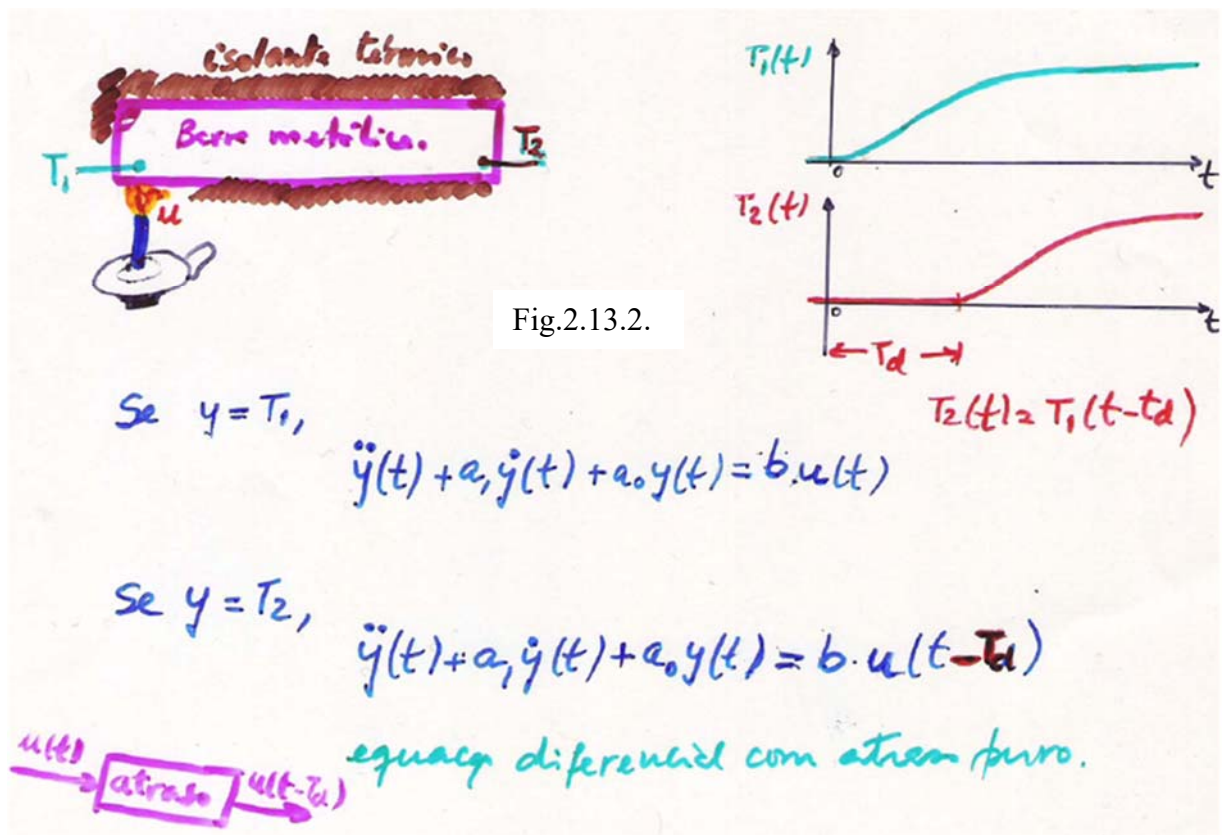 isolante térmico
Barra metálica.
T₁
T₂
u
T₁(t)
0
t
T₂(t)
0
t
Td
T₂(t) = T₁(t-td)
Fig.2.13.2.
Se y = T₁,
ÿ(t) + a₁ẏ(t) + a₀y(t) = b.u(t)
Se y = T₂,
ÿ(t) + a₁ẏ(t) + a₀y(t) = b.u(t-Td)
u(t)
atraso
u(t-Td)
equação diferencial com atraso puro.